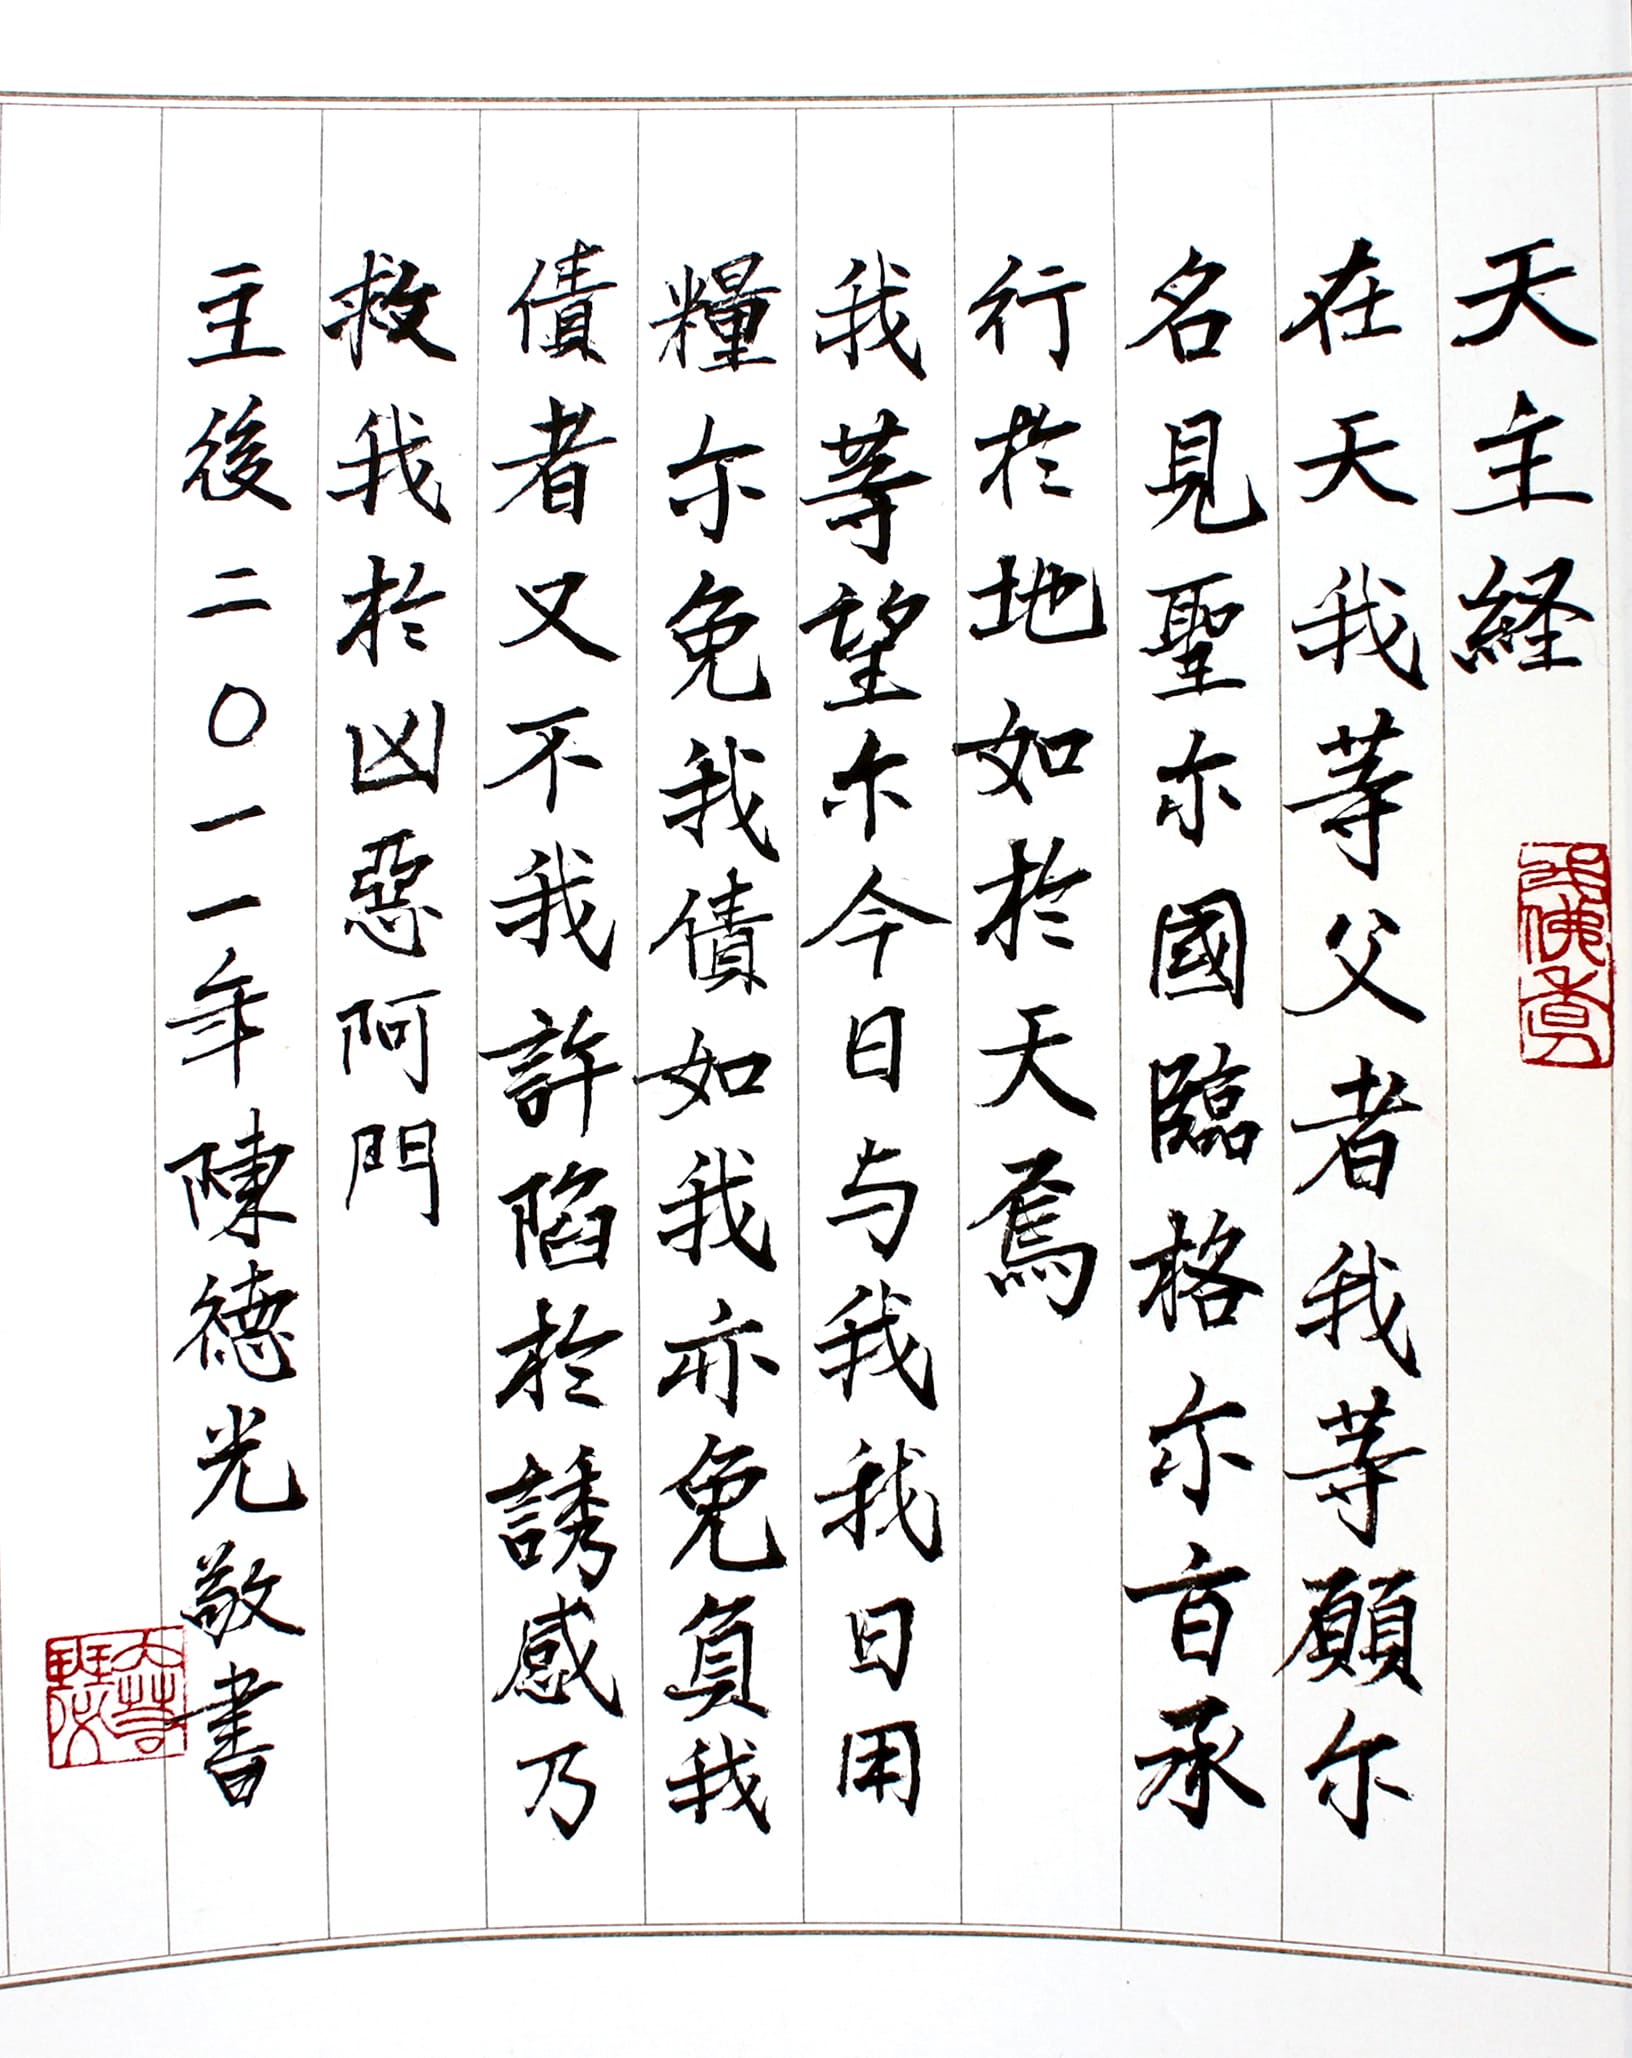 天主経
在天我等父者我等願尔
名見聖尔國臨格尔旨承
行於地如於天焉
我等望尔今日与我我日用
糧尔免我債如我亦免負我
債者又不我許陷於誘感乃
救我於凶惡阿門
主後二〇一一年陳德光敬書